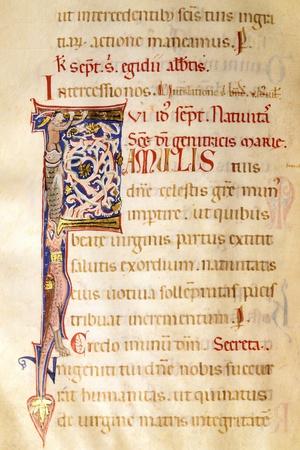 ut intercedentib; scīs tuis ingra
tiaꝝ actione maneamus. P.
k̄ sept̄. S. egidii abbis.
Intercessio nos.
VI id' sept̄. Natiuitas
Scē dī genitricis marie.
FAMULIS tuis
dn̄e celestis gr̄e mun'
imptire. ut quibus
beate uirginis partus extitit
salutis exordium. natiuitatis
eius uotiua sollepnitas pacis
tribuat incrementum. P.
Secreta.
nigeniti tui dn̄e nobis succur
rat humanitas. ut qui natus
de uirgine matris integritatē